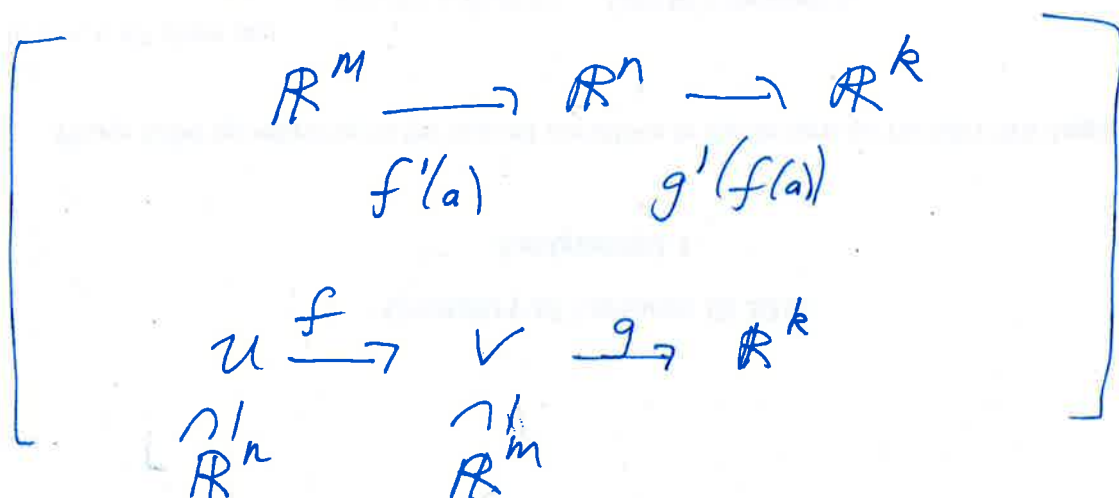 ℝ^m → ℝ^n → ℝ^k
f'(a) g'(f(a))
U →^f V →^g ℝ^k
∩ ∩
ℝ^n ℝ^m